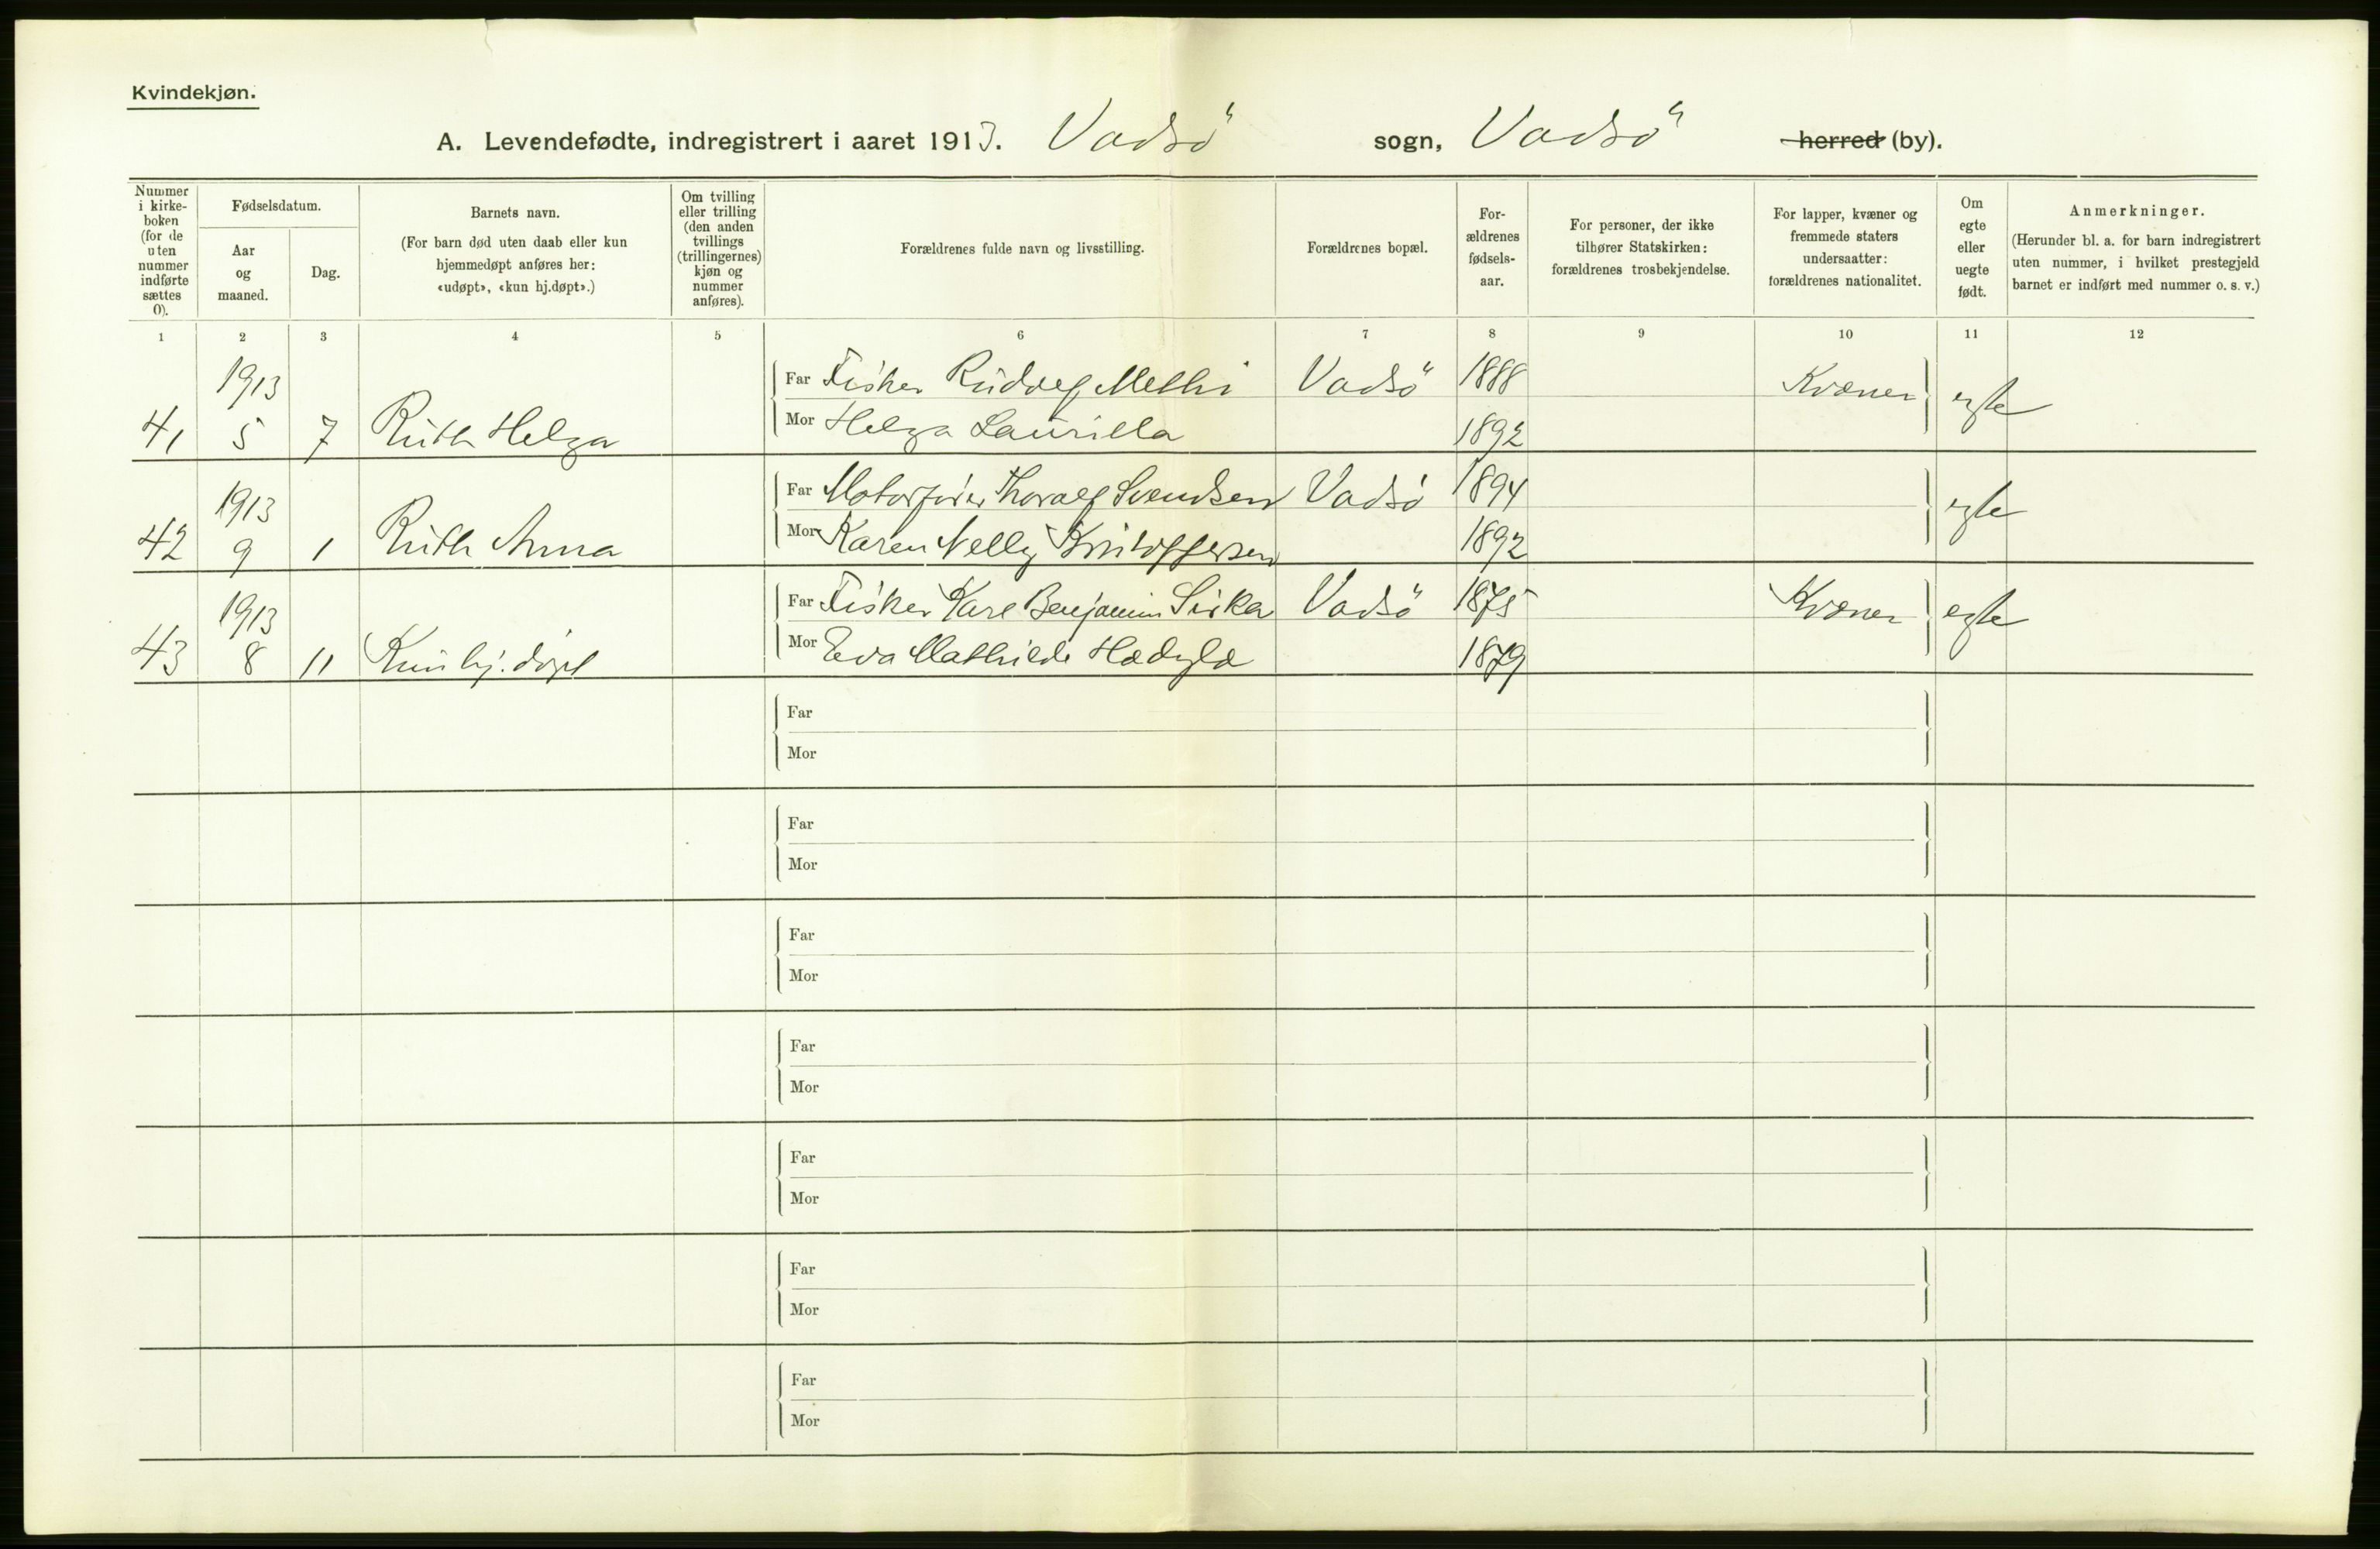 Kvindekjøn.
A. Levendefødte, indregistrert i aaret 1913. Vadsö sogn, Vadsö herred (by).
Nummer i kirke- boken (for de uten nummer indførte sættes 0).
Fødselsdatum.
Aar og maaned.
Dag.
Barnets navn.
(For barn død uten daab eller kun hjemmedøpt anføres her: «udøpt», «kun hj.døpt».)
Om tvilling eller trilling (den anden tvillings (trillingernes) kjøn og nummer anføres).
Forældrenes fulde navn og livsstilling.
Forældrenes bopæl.
For- ældrenes fødsels- aar.
For personer, der ikke tilhører Statskirken: forældrenes trosbekjendelse.
For lapper, kvæner og fremmede staters undersaatter: forældrenes nationalitet.
Om egte eller uegte født.
Anmerkninger.
(Herunder bl. a. for barn indregistrert uten nummer, i hvilket prestegjeld barnet er indført med nummer o. s. v.)
1 2 3 4 5 6 7 8 9 10 11 12
1913 Far Fisker Rudolf Vadsö 1888 Kvæner egte
41 5 7 Ruth Helga Mor Helga Laurilla 1892
1913 Far Motorfører Thoralf Svendsen Vadsö 1894 egte
42 9 1 Ruth Anna Mor Karen Nelly Kristoffersen 1892
1913 Far Fisker Karl Benjamin Sirka Vadsö 1875 Kvæner egte
43 8 11 Kun hj. døpt Mor Eva Mathilde 1879
Far
Mor
Far
Mor
Far
Mor
Far
Mor
Far
Mor
Far
Mor
Far
Mor